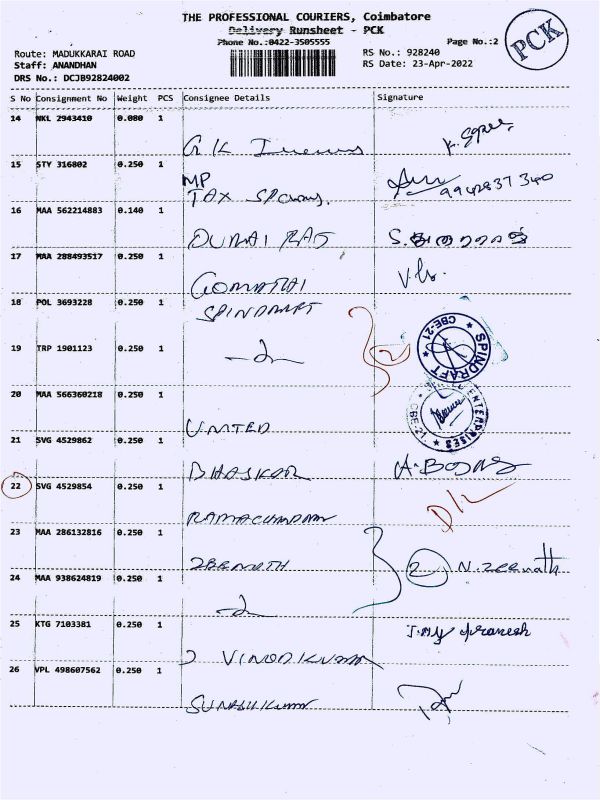 THE PROFESSIONAL COURIERS, Coimbatore
Delivery Runsheet - PCK
Phone No.:0422-3505555
Page No.:2
PCK
Route: MADUKKARAI ROAD
RS No.: 928240
Staff: ANANDHAN
RS Date: 23-Apr-2022
DRS No.: DCJB92824002
S No Consignment No Weight PCS Consignee Details Signature
14 NKL 2943410 0.080 1
GK
15 STY 316802 0.250 1
MP
TAX
9942837340
16 MAA 562214883 0.140 1
DURAI RAJ
17 MAA 288493517 0.250 1
GOMATHI
18 POL 3693228 0.250 1
SPINDRAFT
19 TRP 1901123 0.250 1
2
SPINDRAFT
CBE-21
20 MAA 566360218 0.250 1
UNITED
ENTERPRISES
CBE-21
21 SVG 4529862 0.250 1
BHASKAR
22 SVG 4529854 0.250 1
D/L
23 MAA 286132816 0.250 1
ZEENATH
2 N. Zeenath
24 MAA 938624819 0.250 1
25 KTG 7103381 0.250 1
J VINODKUMAR
26 VPL 498607562 0.250 1